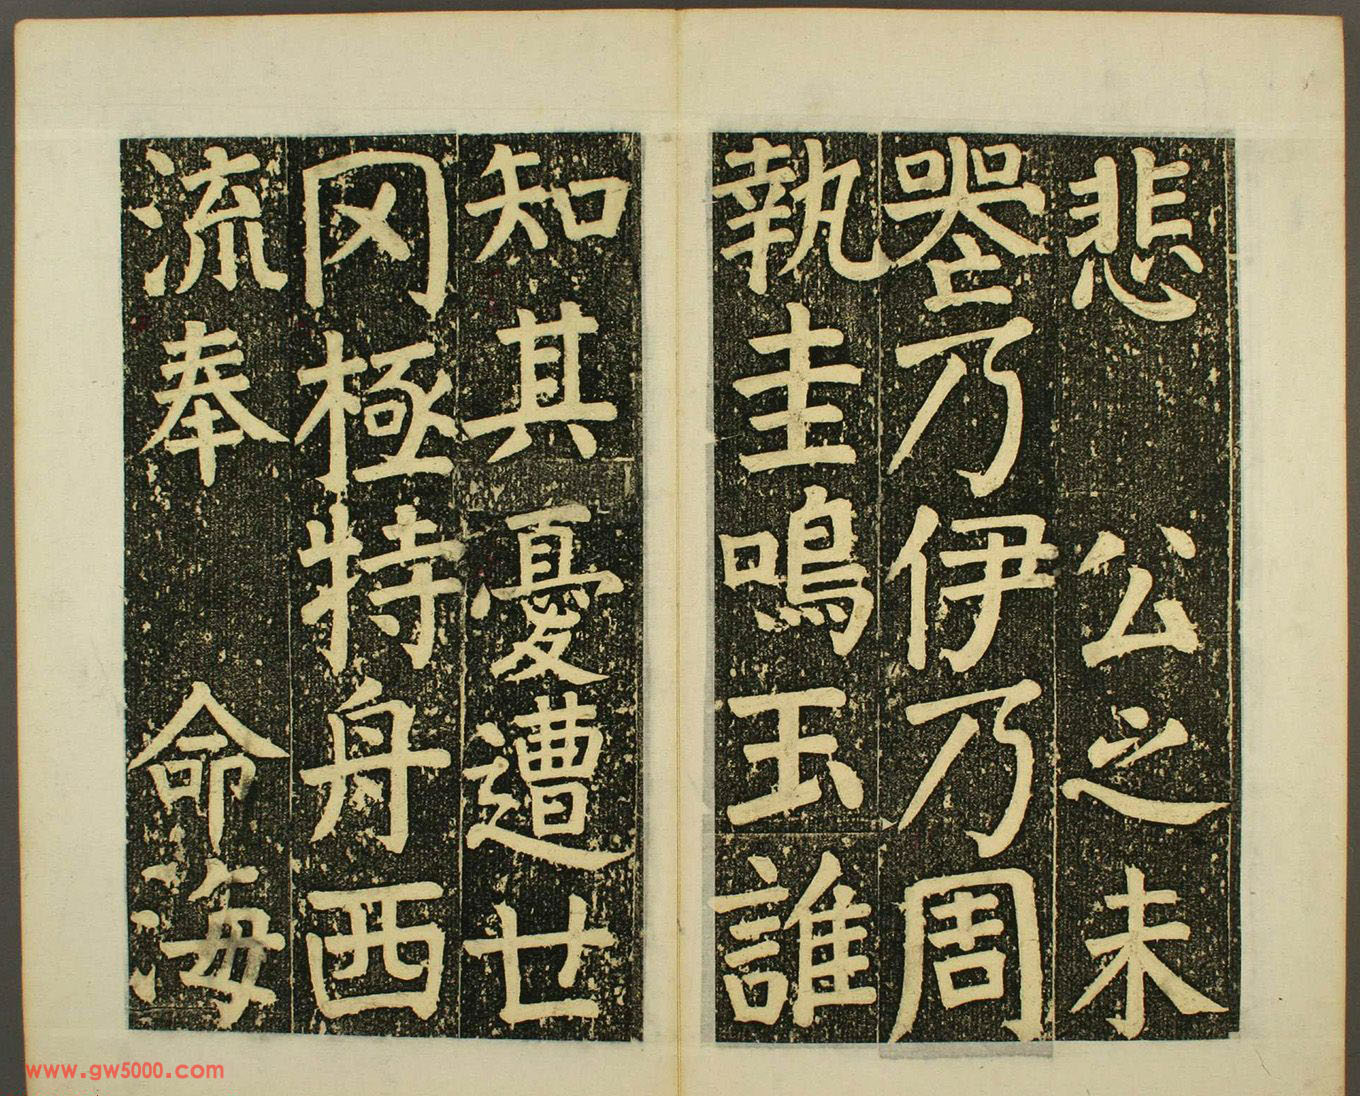 悲 公之未
契乃伊乃周
執圭鳴玉誰
知其憂遭世
罔極特舟西
流奉 命海
www.gw5000.com